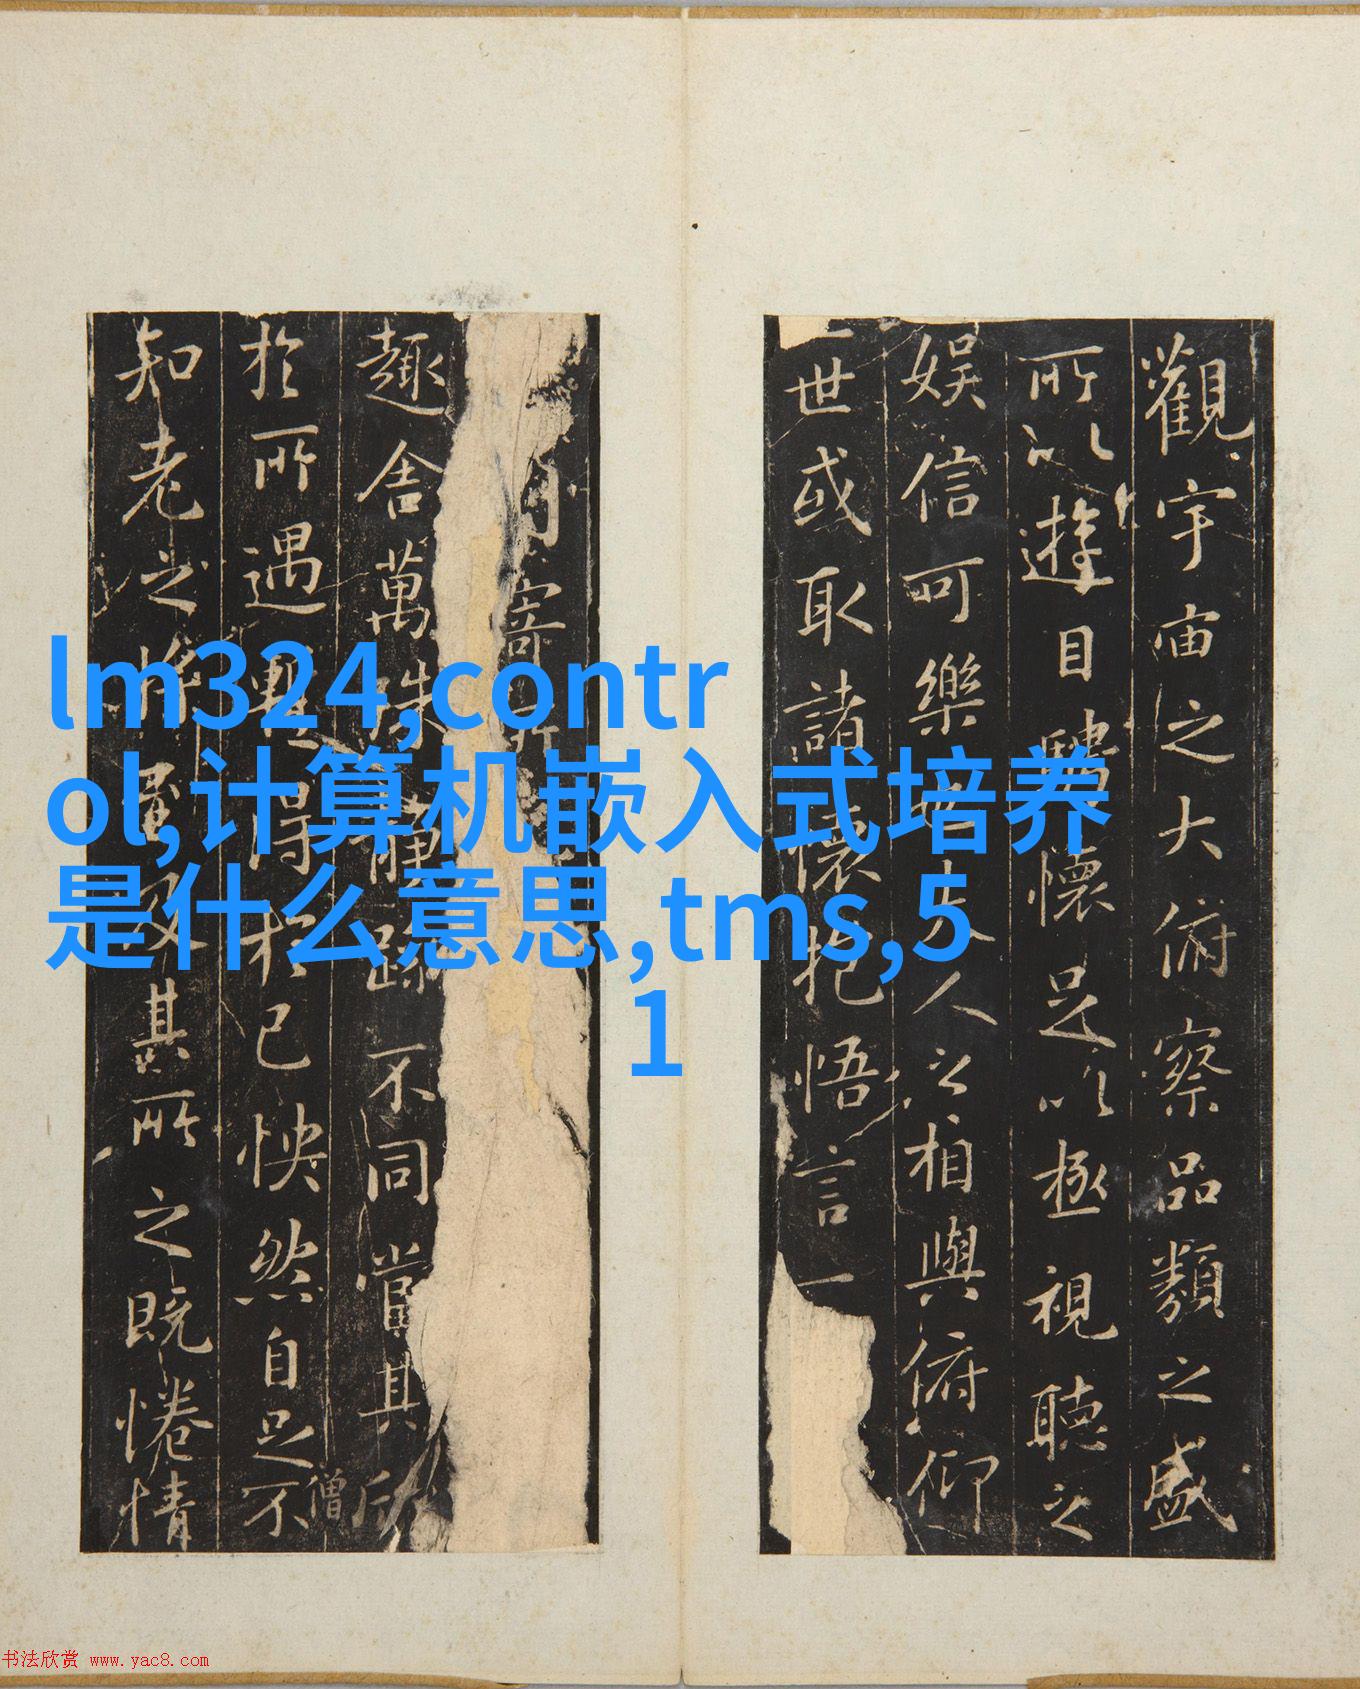 lm324,contr
ol,计算机嵌入式培养
是什么意思,tms,5
1
觀宇宙之大俯察品類之盛
所以遊目騁懷足以極視聽之
娛信可樂也夫人之相與俯仰
一世或取諸懷抱悟言一
寄
趣舍萬殊靜躁不同當其欣
僧
於所遇暫得於己怏然自足不
知老之將及其所之既惓情
书法欣赏 www.yac8.com